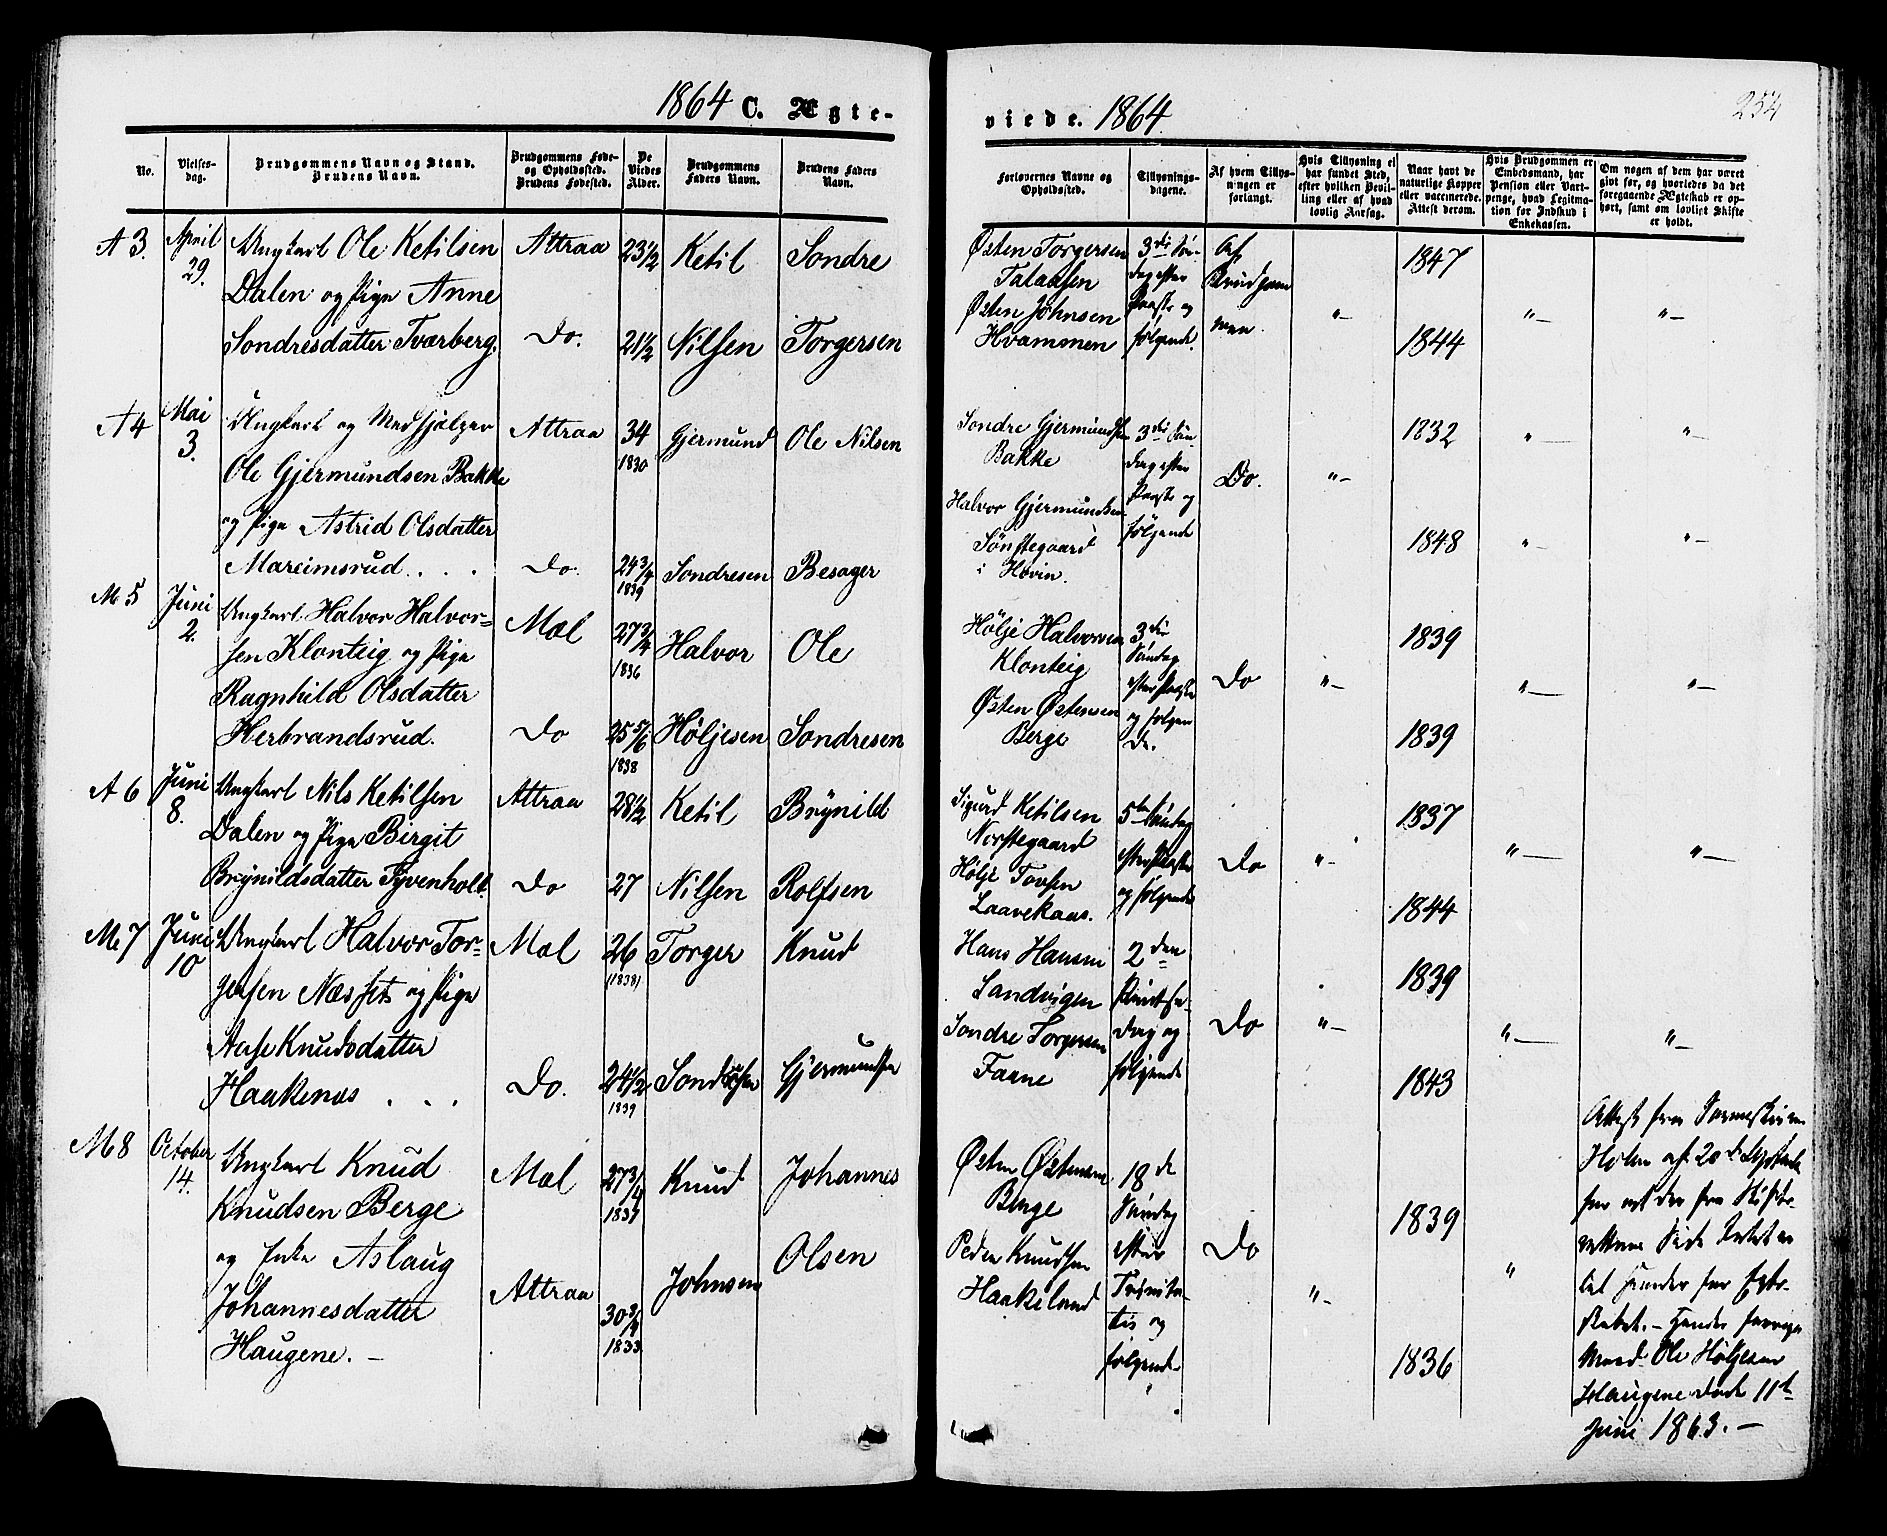 1864 C. Ægte-
No.
Vielses-
dag.
Brudgommens Navn og Stand.
Brudens Navn.
Brudgommens Føde-
og Opholdssted.
Brudens Fødested.
De
Viedes
Alder.
Brudgommens
Faders Navn.
Brudens Faders
Navn.
A 3. April 29. Ungkarl Ole Ketilsen Attraa 23 1/2 Ketil Sondre
Dalen og Pige Anne
Sondresdatter Tværberg. Do. 21 1/2 Nilsen Torgersen
A 4 Mai 3. Ungkarl og Medhjælper Attraa 34 1830 Gjermund Ole Nilsen
Ole Gjermundsen Bakke
og Pige Astrid Olsdatter
Mareimsrud. . . Do. 24 3/4 1839 Sondresen Besager
M 5 Juni 2. Ungkarl Halvor Halvor-
sen Klonteig og Pige Mæl 27 3/4 1836 Halvor Ole
Ragnhild Olsdatter
Herbrandsrud. Do 25 5/6 1838 Høljesen Sondresen
A 6 Juni 8. Ungkarl Nils Ketilsen Attraa 28 1/2 Ketil Brynild
Dalen og Pige Birgit
Brynildsdatter Tyvenholt. Do 27 Nilsen Rolfsen
M 7 Juni 10 Ungkarl Halvor Tor- Mæl 26 (1838) Torger Knud
gersen Næsset og Pige
Aase Knudsdatter
Haakenæs . . . Do. 24 1/2 1839 Sondresen Gjermundsen
M 8 October 14. Ungkarl Knud Mæl 27 3/4 1837 Knud Johannes
Knudsen Berge
og Enke Aslaug
Johannesdatter Attraa 30 3/4 1833 Johnsen Olsen
Haugene. –
viede. 1864
254
Forlovernes Navne og
Opholdssted.
Tillysnings-
dagene.
Af hvem Tillys-
ningen er
forlangt.
Hvis Tillysning ei
har fundet Sted,
efter hvilken Bevil-
ling eller af hvad
lovlig Aarsag.
Naar havt de
naturlige Kopper
eller vaccinerede.
Attest derom.
Hvis Brudgommen er
Embedsmand, har
Pension eller Vart-
penge, hvad Legitima-
tion for Indskud i
Enkekassen.
Om nogen af dem har været
givt før, og hvorledes da det
foregaaende Ægteskab er op-
hørt, samt om lovligt Skifte
er holdt.
Østen Torgersen 3die Søn- Af 1847
Talaasen dag efter Brudgom-
Østen Johnsen Paaske og men. "– "– "–
Hvammen følgende. 1844
Sondre Gjermundsen 3die Søn- 1832 "– "–
Bakke dag efter Do. "–
Halvor Gjermundsen Paaske og
Sønstegaard følgende 1848 "– "–
i Hovin.
Hølje Halvorsen 3die 1839
Klonteig Søndag Do "– "– "–
Østen Østensen efter Paaske
Berge og følgen- 1839
de.
Sigurd Ketilsen 5te Søndag 1837
Norstegaard efter Paaske Do "– "– "–
Hølje Tovsen og følgende
Laavekaas. 1844
Hans Hansen 2den 1839
Sandvigen Pintse-
Sondre Torgersen dag og Do "– "– "–
Faane følgende 1843
Østen Østensen 18de
Berge Søndag 1839
Peder Knudsen efter Do
Haakeland Trinita- "– "
tis og
følgende 1836
Attest fra
Holm af 20de
for at der fra Skifte-
rettens Side Intet er
til Hinder for Egte-
skabet. – Hendes forrige
Mand Ole Høljesen
Haugene døde 11te
Juni 1863. –